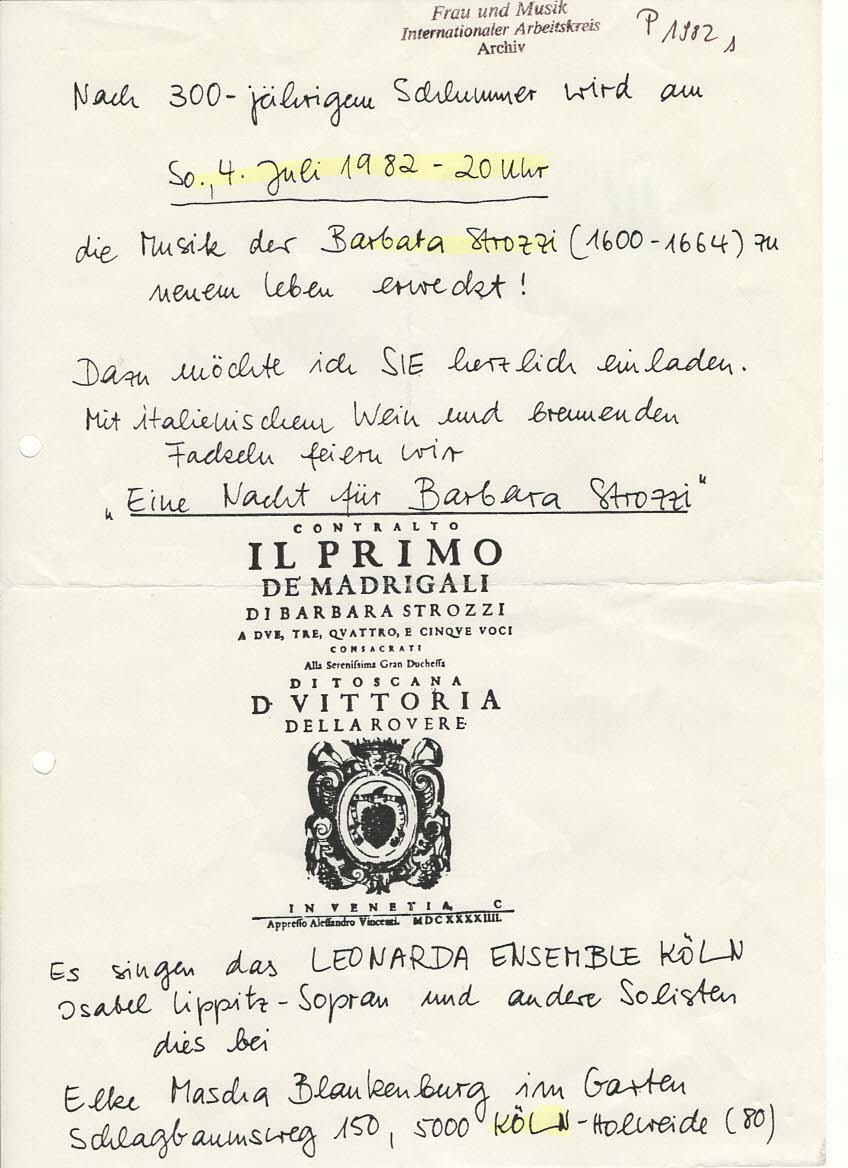 Frau und Musik
Internationaler Arbeitskreis
Archiv
P 1982 1
Nach 300-jährigem Schlummer wird am
So., 4. Juli 1982 - 20 Uhr
die Musik der Barbara Strozzi (1600-1664) zu
neuem Leben erweckt!
Dazu möchte ich SIE herzlich einladen.
Mit italienischem Wein und brennenden
Fackeln feiern wir
"Eine Nacht für Barbara Strozzi"
CONTRALTO
IL PRIMO
DE' MADRIGALI
DI BARBARA STROZZI
A DVE, TRE, QVATTRO, E CINQVE VOCI
CONSACRATI
Alla Sereniſsima Gran Ducheſſa
DI TOSCANA
D VITTORIA
DELLA ROVERE
IN VENETIA, C
Appreſſo Aleſſandro Vincenti. MDCXXXXIIII.
Es singen das LEONARDA ENSEMBLE KÖLN
Isabel Lippitz - Sopran und andere Solisten
dies bei
Elke Mascha Blankenburg im Garten
Schlagbaumsweg 150, 5000 KÖLN-Holweide (80)